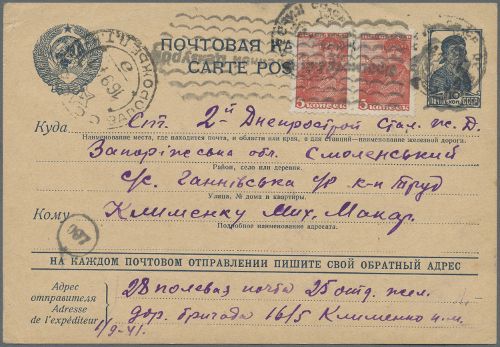 ПОЧТОВАЯ КА
CARTE POS
5 КОПЕЕК 5 КОПЕЕК
10
ЗАПОРОЖЬЕ
16 9
Куда Ст. 2й Днепрострой Стал. ж. Д.
Наименование места, где находится почта, и области или края, а для станций—наименование железной дороги.
Запоріжська обл. Смоленський
Район, село или деревня.
с/с. Ганнівська р к-п Труд
Улица, № дома и квартиры.
Кому Клименку Мих. Макар.
Подробное наименование адресата.
НА КАЖДОМ ПОЧТОВОМ ОТПРАВЛЕНИИ ПИШИТЕ СВОЙ ОБРАТНЫЙ АДРЕС
Адрес отправителя
Adresse de l'expéditeur
28 полевая почта 25 отд. жел.
дор. бригада 16/5 Клименко
1/9-41.